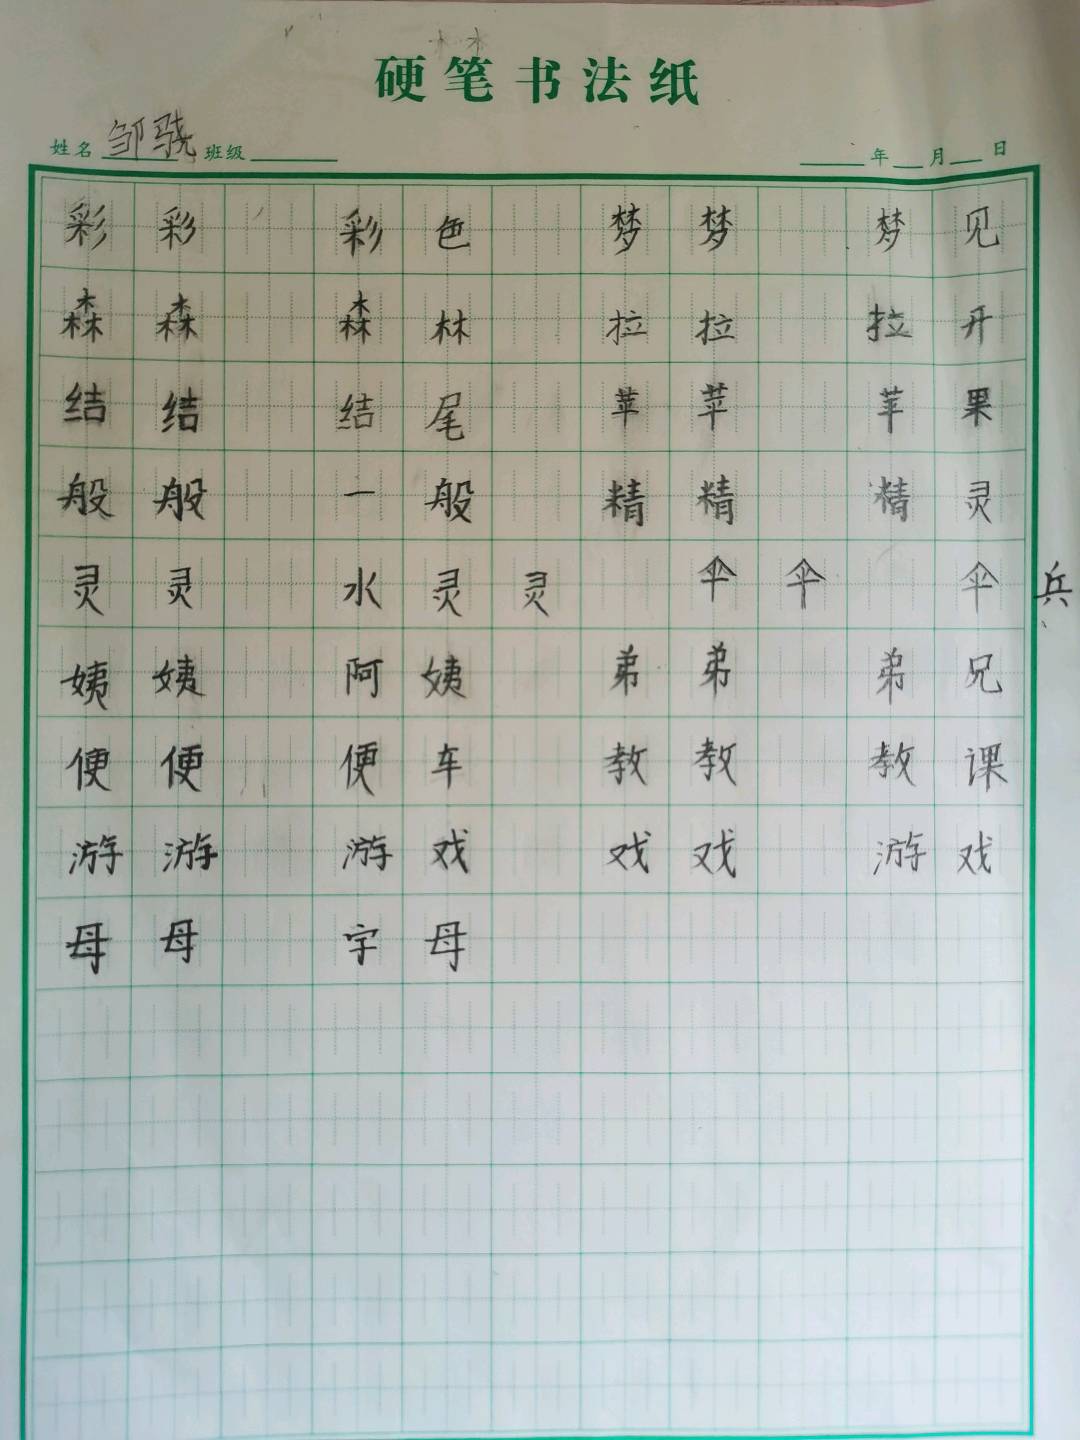 硬笔书法纸
姓名 邹骁 班级 年 月 日
彩 彩 彩 色 梦 梦 梦 见
森 森 森 林 拉 拉 拉 开
结 结 结 尾 苹 苹 苹 果
般 般 一 般 精 精 精 灵
灵 灵 水 灵 灵 伞 伞 伞 兵
姨 姨 阿 姨 弟 弟 弟 兄
便 便 便 车 教 教 教 课
游 游 游 戏 戏 戏 游 戏
母 母 字 母